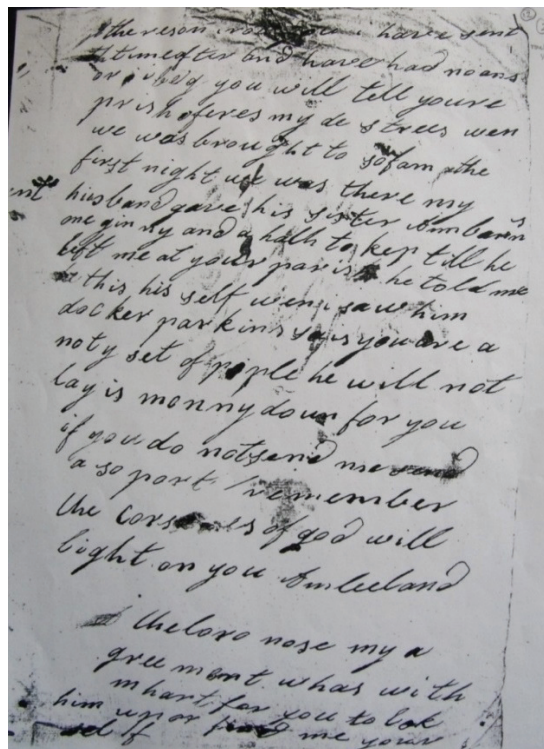 the reson have sent
time after and have had no ans
or i beg you will tell youre
prishoferes my de strees wen
we was brought to sofam the
first night we was there my
husband gave his sister Ann
one ginny and a halh to kep till he
left me at your paris he told me
this his self wen i saw him
docker parkins sais you are a
noty set of piple he will not
lay is monny down for you
if you do not send me
a so port remember
the of god will
light on you
the loro nose my a
gree ment whas with
m hart for you to lok
him up or me your
self